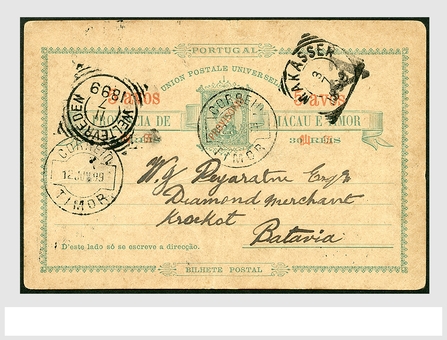 PORTUGAL
UNION POSTALE UNIVERSELLE
PROVINCIA DE MACAU E TIMOR
avos avos
PROVISORIO
30 RÉIS
MAKASSER
WELTEVREDEN
1899
CORREIO
TIMOR
CORREIO
12 JUN 99
TIMOR
W. J. Deyaratne Esqre
Diamond merchant
Krockot
Batavia
D'este lado só se escreve a direcção.
BILHETE POSTAL